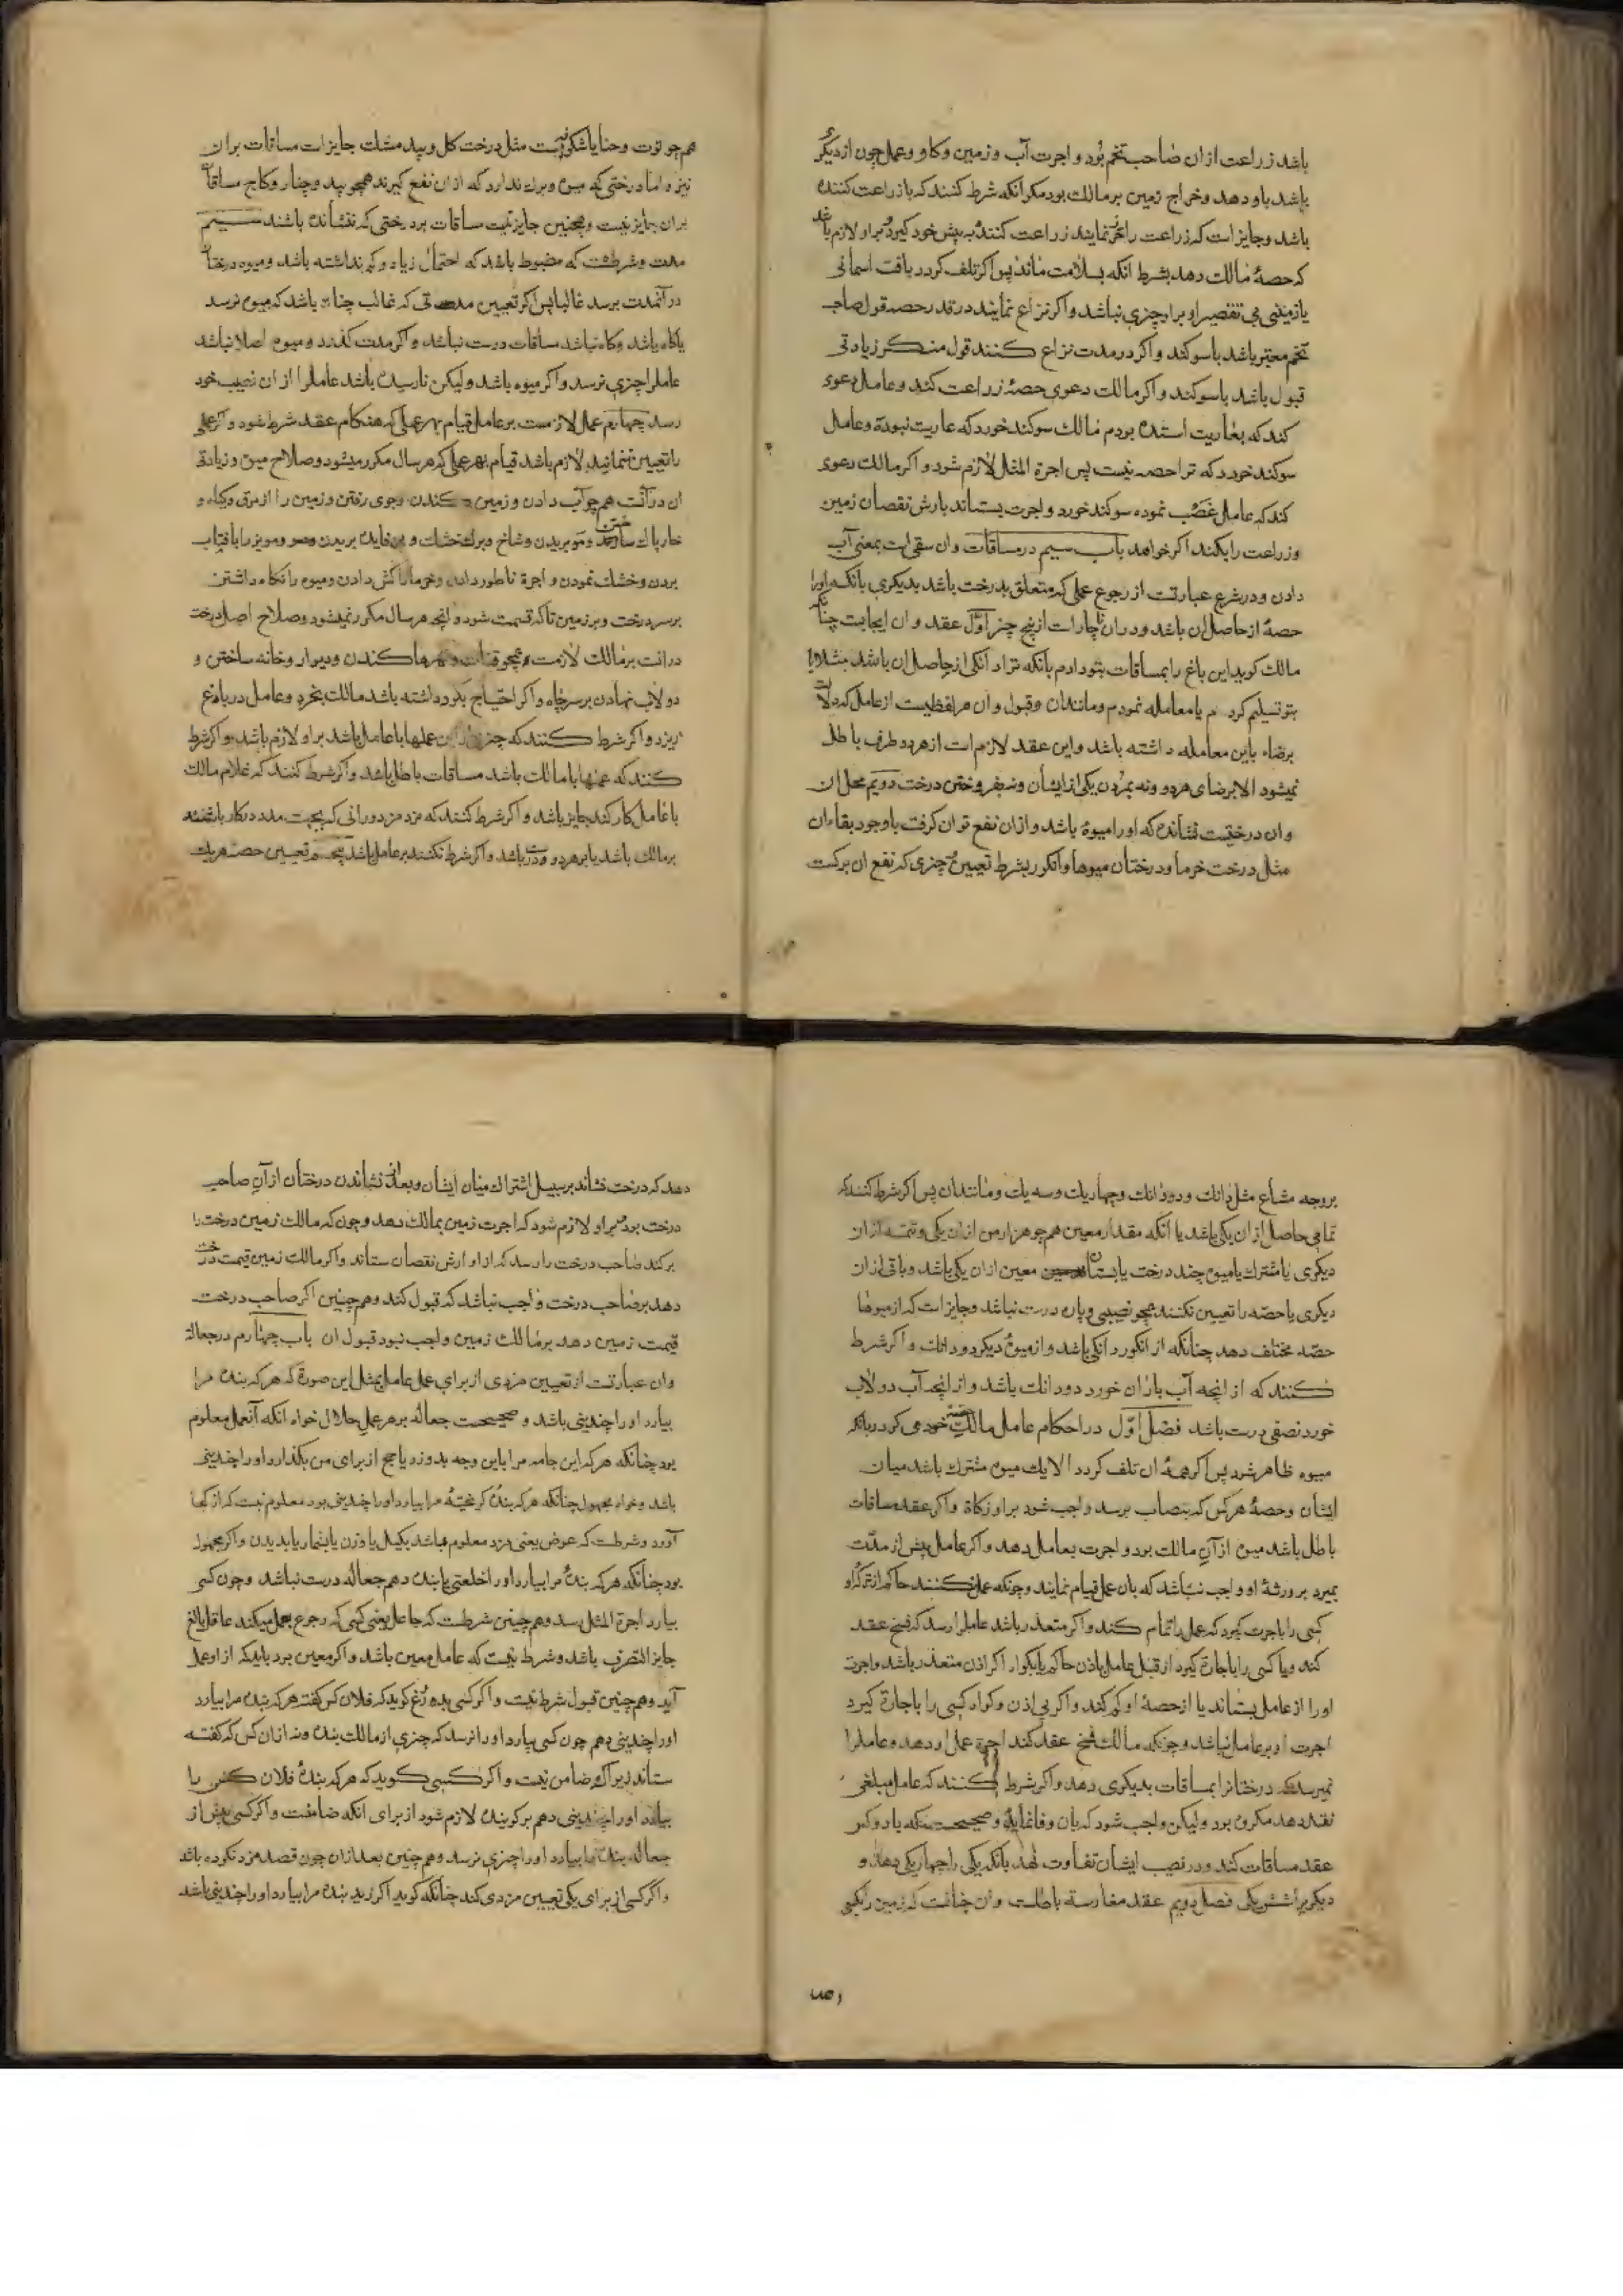 باشد زراعت از ان صاحب تخم بود و اجرت آب و زمین و کاو و عمل چون از دیکری
باشد باو دهد و خراج زمین بر مالک بود مکر انکه شرط کنند که با زراعت کننده
باشد و جایز است که زراعت را نمایند زراعت کننده به پیش خود کیرد و براو لازم باشد
که حصهٔ مالک دهد بشرط انکه بسلامت ماند پس اکر تلف کردد بافت اسمانی
یا زمینی بی تقصیر او براو چیزی نباشد و اکر نزاع نمایند در قدر حصه قول صاحب
تخم معتبر باشد باسوکند و اکر در مدت نزاع کنند قول منکر زیادتی
قبول باشد باسوکند و اکر مالک دعوی حصهٔ زراعت کند و عامل دعوی
کند که بعاریت استده بودم مالک سوکند خورد که عاریت نبوده و عامل
سوکند خورد که ترا حصه نیست پس اجرة المثل لازم شود و اکر مالک دعوی
کند که عامل غصب نموده سوکند خورد و اجرت بستاند بارش نقصان زمین
و زراعت را بکند اکر خواهد باب سیم در مساقات و ان سقی است بمعنی آب
دادن و در شرع عبارتست از رجوع عملی که متعلق بدرخت باشد بدیکری بانکه اورا
حصهٔ از حاصل ان باشد و در ان ناچار است از پنج چیز اوّل عقد و ان ایجابست چنانکه
مالک کوید این باغ را بمساقات بتو دادم بانکه ترا دانکی از حاصل ان باشد مثلا یا
بتو تسلیم کردم یا معامله نمودم و مانند ان و قبول و ان هر لفظیست از عامل که دلالت
برضاء باین معامله داشته باشد و این عقد لازم است از هر دو طرف باطل
نمیشود الا برضای هر دو و نه بمردن یکی از ایشان و نه بفروختن درخت دویم محل ان
و ان درختیست نشانده که اورا میوهٔ باشد و ازان نفع توان کرفت باوجود بقاء ان
مثل درخت خرما و درختان میوها و انکور بشرط تعیین چیزی که نفع ان برکست
هم چو توت و حنا یا شکوفه است مثل درخت کل و بید مشک جایز است مساقات بران
نیز و اما درختی که میوه و برک ندارد که ازان نفع کیرند همچو بید و چنار و کاج مساقات
بران جایز نیست و همچنین جایز نیست مساقات بر درختی که ننشانده باشند سیم
مدت و شرطست که مضبوط باشد که احتمال زیاد و کم نداشته باشد و میوه درختان
در آنمدت برسد غالبا پس اکر تعیین مدتی که غالب چنان باشد که میوه نرسد
یا کاه باشد و کاه نباشد مساقات درست نباشد و اکر مدت کذرد و میوه اصلا نباشد
عامل را چیزی نرسد و اکر میوه باشد ولیکن نارسیده باشد عامل را از ان نصیب خود
رسد چهارم عمل لازمست بر عامل قیام بهر عملی که هنکام عقد شرط شود و اکر عملی
را تعیین ننمایند لازم باشد قیام بهر عملی که هر سال مکرر میشود و صلاح میوه و زیادتی
ان در آنست هم چو آب دادن و زمین کندن و جوی رفتن و زمین را از برک و کیاه و
خار پاک ساختن و مو بریدن و شاخ و برک خشک و بی فایده بریدن و مویز را بافتاب
بردن و خشک نمودن و اجرة ناطور دادن و خرما را کش دادن و میوه را نکاه داشتن
برسر درخت و بر زمین تا که قسمت شود و انچه هر سال مکرر نمیشود و صلاح اصل درخت
درانست بر مالک لازمست همچو کندن و دیوار و خانه ساختن و
دولاب نهادن برسر چاه و اکر احتیاج بکود داشته باشد مالک بخرد و عامل در باغ
ریزد و اکر شرط کنند که چیزی از این عملها با عامل باشد براو لازم باشد و اکر شرط
کنند که عملها با مالک باشد مساقات باطل باشد و اکر شرط کنند که غلام مالک
با عامل کار کند جایز باشد و اکر شرط کنند که مزد مزدورانی که بجهت مدد درکار باشند
بر مالک باشد یا بر هر دو درست باشد و اکر شرط نکنند بر عامل باشد پنجم تعیین حصهٔ هر یک
بر وجه مشاع مثل دانک و دو دانک و چهار یک و سه یک و مانند ان پس اکر شرط کنند که
تمامی حاصل از ان یکی باشد یا انکه مقدار معین هم چو هزار من از ان یکی و تتمه از ان
دیکری یا مشترک یا میوه چند درخت یا بستان معین از ان یکی باشد و باقی از ان
دیکری یا حصّه را تعیین نکنند همچو نصیبی و پاره درست نباشد و جایز است که از میوها
حصّه مختلف دهد چنانکه از انکور دانکی باشد و از میوهٔ دیکر دو دانک و اکر شرط
کنند که از انچه آب باران خورد دو دانک باشد و از انچه آب دولاب
خورد نصفی درست باشد فصل اوّل در احکام عامل مالک حصّه خود می کردد بانکه
میوه ظاهر شود پس اکر همهٔ ان تلف کردد الا یک میوه مشترک باشد میان
ایشان و حصهٔ هر کس که بنصاب برسد واجب شود براو زکاة و اکر عقد مساقات
باطل باشد میوه از آن مالک بود و اجرت بعامل دهد و اکر عامل پیش از مدّت
بمیرد بر ورثهٔ او واجب نباشد که بان عمل قیام نمایند و چونکه عمل نکنند حاکم از ترکهٔ او
کسی را باجرت کیرد که عمل را تمام کند و اکر متعذر باشد عامل را رسد که فسخ عقد
کند و یا کسی را باجارة کیرد از قبل عامل باذن حاکم یا بکواه اکر اذن متعذر باشد و اجرت
اورا از عامل بستاند یا از حصهٔ او کم کند و اکر بی اذن و کواه کسی را باجارة کیرد
اجرت او بر عامل نباشد و چونکه مالک فسخ عقد کند اجرة عمل او دهد و عامل را
نمیرسد که درختانرا بمساقات بدیکری دهد و اکر شرط کنند که عامل مبلغی
نقد دهد مکروه بود ولیکن واجب شود که بان وفا نماید و صحیحست که با دو کس
عقد مساقات کند و در نصیب ایشان تفاوت نهد بانکه یکی را چهار یکی دهد و
دیکریرا شش یکی فصل دویم عقد مغارسه باطلست و ان چنانست که زمین را بکسی
دهد که درخت نشاند بر سبیل اشتراک میان ایشان و بعد از نشاندن درختان از آن صاحب
درخت بود و براو لازم شود که اجرت زمین بمالک دهد و چون که مالک زمین درخت را
برکند صاحب درخت را رسد که از او ارش نقصان ستاند و اکر مالک زمین قیمت درخت
دهد بر صاحب درخت واجب نباشد که قبول کند و هم چنین اکر صاحب درخت
قیمت زمین دهد بر مالک زمین واجب نبود قبول ان باب چهارم در جعاله
وان عبارتست از تعیین مزدی از برای عمل عامل بمثل این صورة که هر که بنده مرا
بیارد اورا چندینی باشد و صحیحست جعاله بر هر عمل حلال خواه انکه آنعمل معلوم
بود چنانکه هر که این جامه مرا باین وجه بدوزد یا حج از برای من بکذارد اورا چندینی
باشد و خواه مجهول چنانکه هر که بندهٔ کریختهٔ مرا بیارد اورا چندینی بود معلوم نیست که از کجا
آورد و شرطست که عوض یعنی مزد معلوم باشد بکیل یا وزن یا بشمار یا بدیدن و اکر مجهول
بود چنانکه هر که بندهٔ مرا بیارد اورا خلعتی یا بنده دهم جعاله درست نباشد و چون کسی
بیارد اجرة المثل رسد و هم چنین شرطست که جاعل یعنی کسی که رجوع بعمل میکند عاقل بالغ
جایز التصرف باشد و شرط نیست که عامل معین باشد و اکر معین بود باید که از او عمل
آید و هم چنین قبول شرط نیست و اکر کسی بدروغ کوید که فلان کس کفته هر که بنده مرا بیارد
اورا چندینی دهم چون کسی بیارد اورا نرسد که چیزی از مالک بنده و نه ازان کس که کفته
ستاند زیرا که ضامن نیست و اکر کسی کوید که هر که بندهٔ فلان کس را
بیارد اورا چندینی دهم بر کوینده لازم شود از برای انکه ضامنست و اکر کسی پیش از
جعاله بنده را بیارد اورا چیزی نرسد و هم چنین بعد ازان چون قصد مزد نکرده باشد
و اکر کسی از برای یکی تعیین مزدی کند چنانکه کوید اکر زید بنده مرا بیارد اورا چندینی باشد